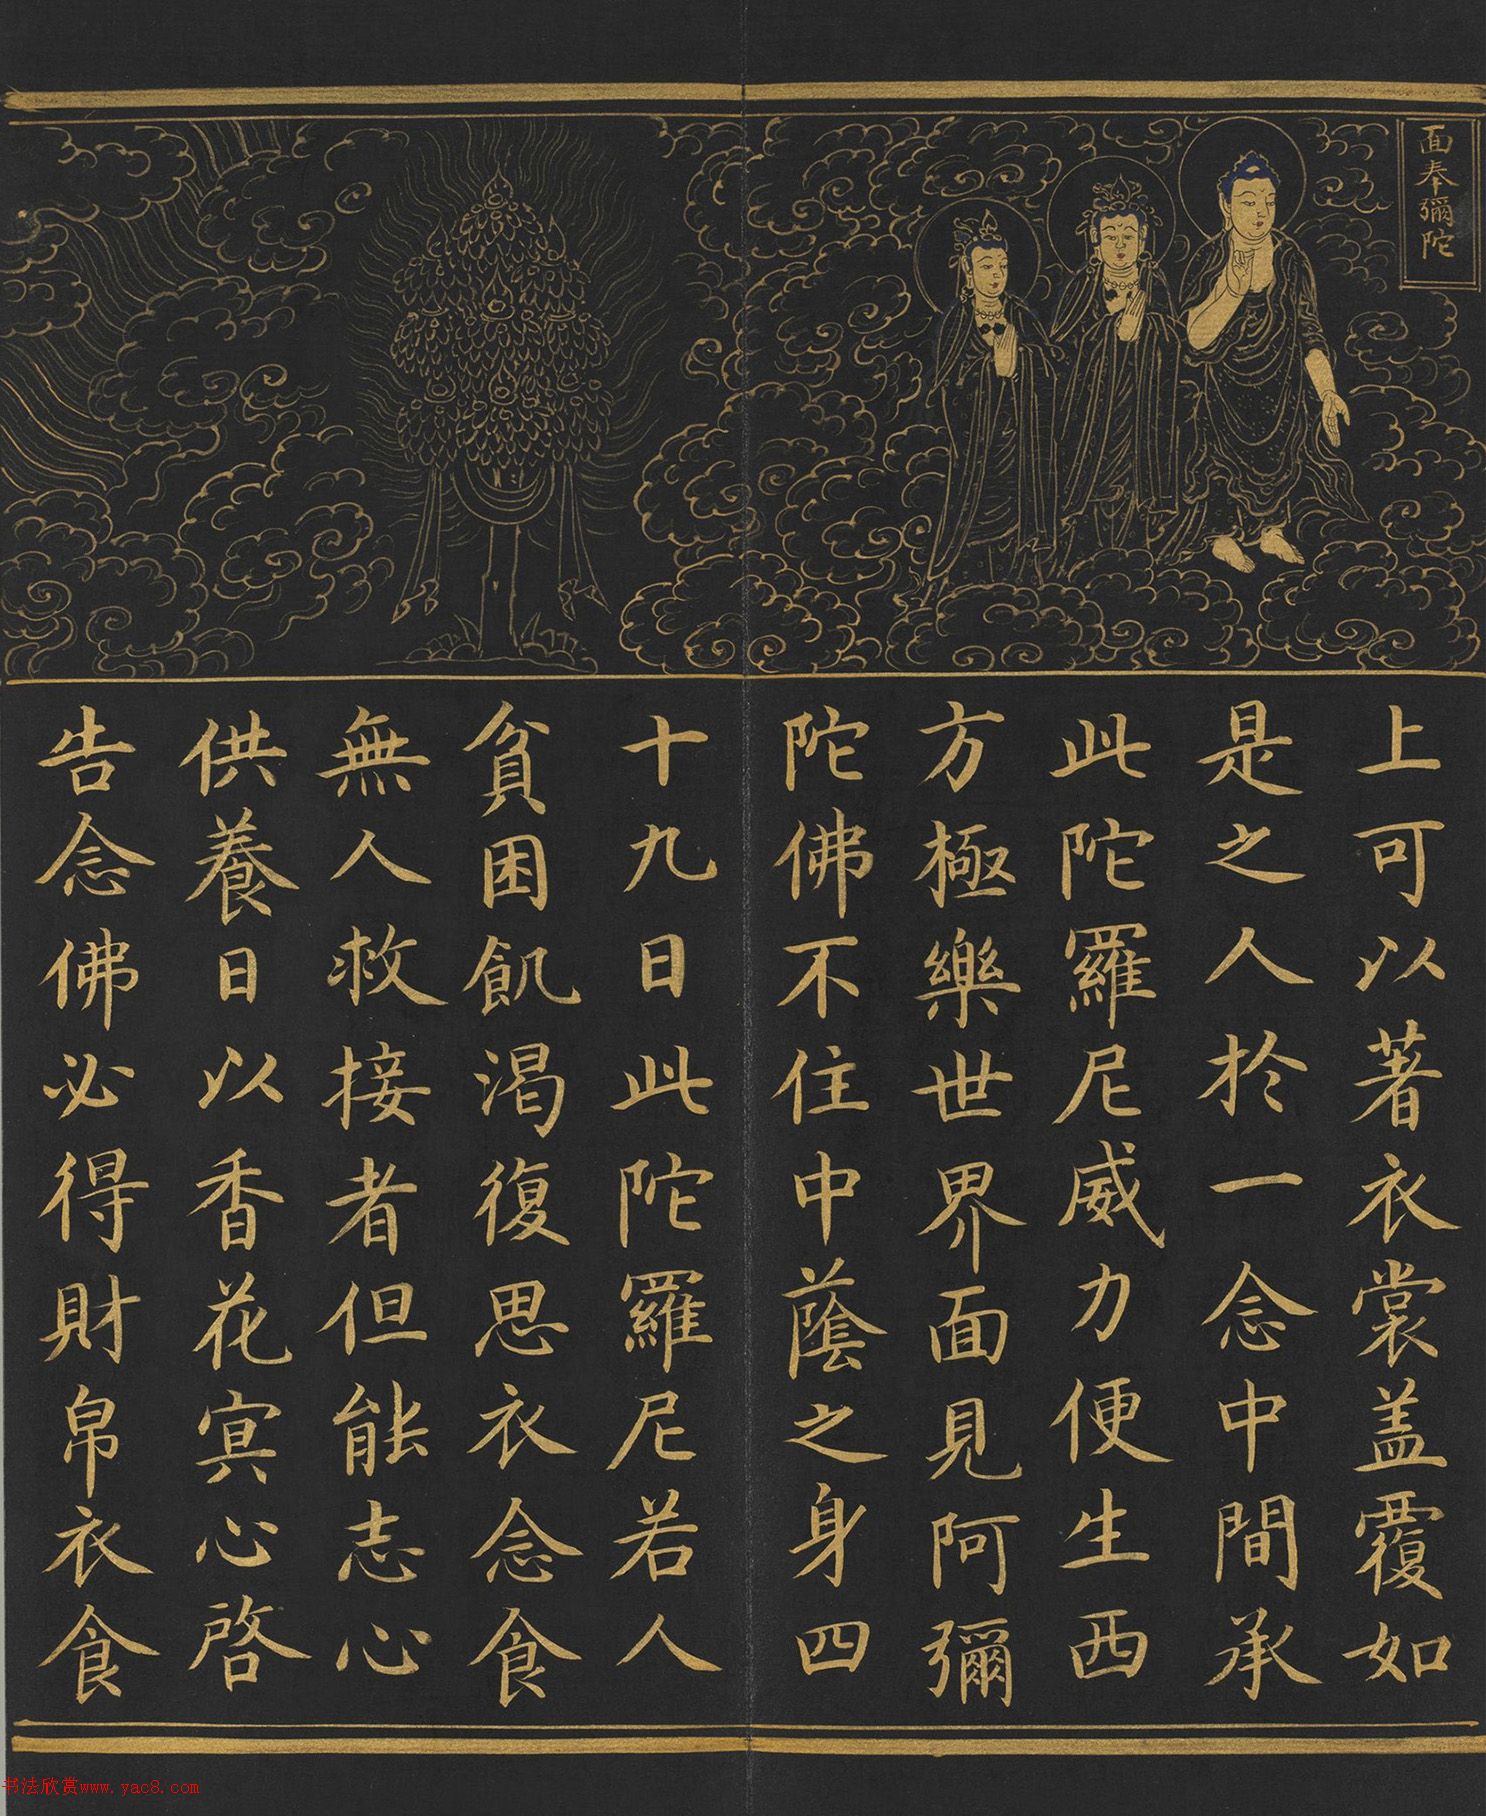 面奉彌陀
上可以著衣裳盖覆如
是之人於一念中間承
此陀羅尼威力便生西
方極樂世界面見阿彌
陀佛不住中蔭之身四
十九日此陀羅尼若人
貧困飢渴復思衣念食
無人救接者但能志心
供養日以香花冥心啓
告念佛必得財帛衣食
书法欣赏www.yac8.com